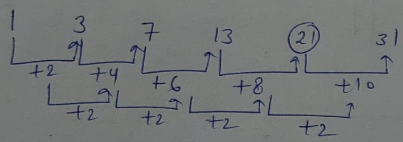 1 3 7 13 21 31
+2 +4 +6 +8 +10
+2 +2 +2 +2